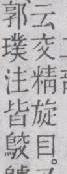 云交精旋目。
郭璞注皆毀